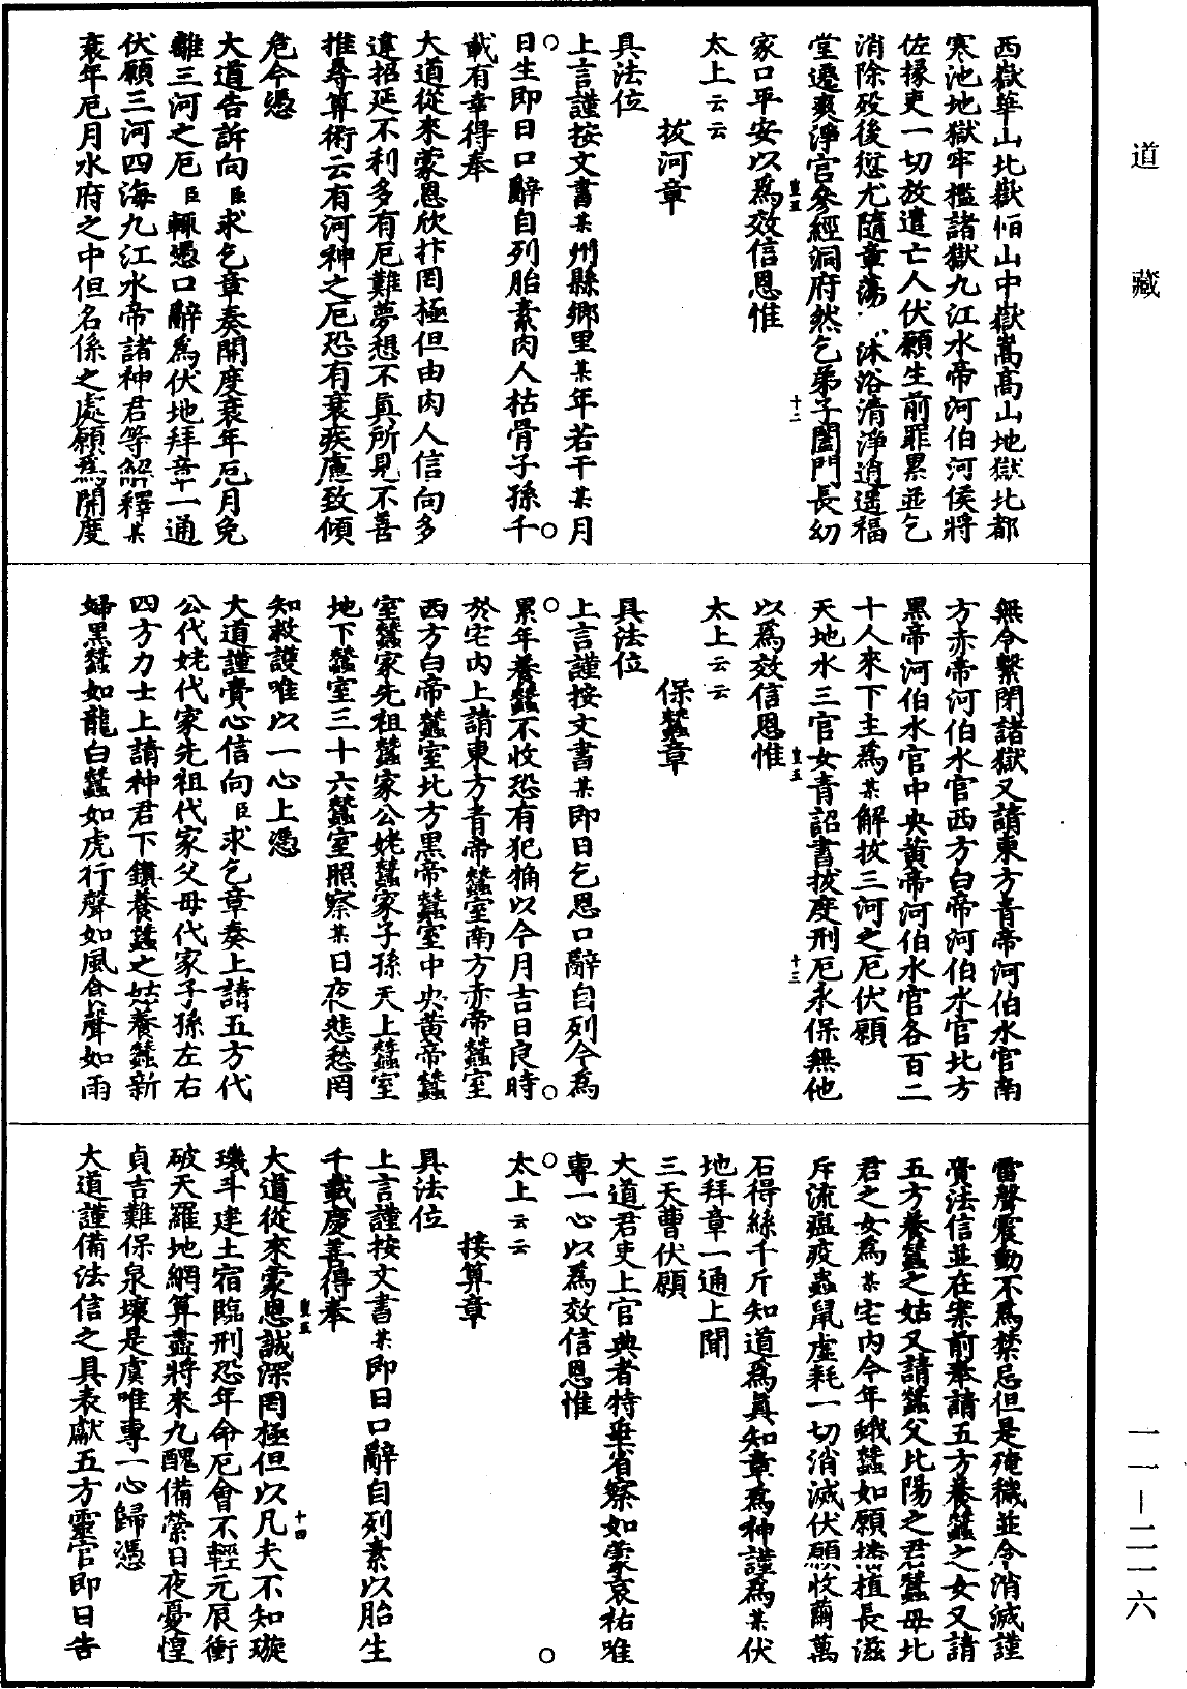 道藏
西嶽華山北嶽恒山中嶽嵩高山地獄北都
寒池地獄牢檻諸獄九江水帝河伯河侯將
佐掾吏一切放遣亡人伏願生前罪累並乞
消除歿後愆尤隨章蕩沐浴清淨逍遙福
堂遷爽淨宮參經洞府然乞弟子闔門長幼
家口平安以為效信恩惟
太上云云
拔河章
具法位
上言謹按文書某州縣鄉里某年若干某月
日生即日口辭自列胎素肉人枯骨子孫千
載有幸得奉
大道從來蒙恩欣抃罔極但由肉人信向多
違招延不利多有厄難夢想不真所見不善
推尋算術云有河神之厄恐有衰疾慮致傾
危今憑
大道告訴向臣求乞章奏開度衰年厄月免
離三河之厄臣輒憑口辭為伏地拜章一通
伏願三河四海九江水帝諸神君等解釋某
衰年厄月水府之中但名係之處願為開度
無令繫閉諸獄又請東方青帝河伯水官南
方赤帝河伯水官西方白帝河伯水官北方
黑帝河伯水官中央黃帝河伯水官各百二
十人來下主為某解拔三河之厄伏願
天地水三官女青詔書拔度刑厄永保無他
以為效信恩惟
太上云云
保蠶章
具法位
上言謹按文書某即日乞恩口辭自列今為
累年養蠶不收恐有犯觸以今月吉日良時
於宅內上請東方青帝蠶室南方赤帝蠶室
西方白帝蠶室北方黑帝蠶室中央黃帝蠶
室蠶家先祖蠶家公姥蠶家子孫天上蠶室
地下蠶室三十六蠶室照察某日夜悲愁罔
知救護唯以一心上憑
大道謹賫心信向臣求乞章奏上請五方代
公代姥代家先祖代家父母代家子孫左右
四方力士上請神君下鎮養蠶之姑養蠶新
婦黑蠶如龍白蠶如虎行聲如風食聲如雨
雷聲震動不為禁忌但是殗穢並令消滅謹
賫法信並在案前奉請五方養蠶之女又請
五方養蠶之姑又請蠶父比陽之君蠶母北
君之女為某宅內今年蛾蠶如願播植長滋
斥流瘟疫蟲鼠虛耗一切消滅伏願收繭萬
石得絲千斤知道為真知章為神謹為某伏
地拜章一通上聞
三天曹伏願
大道君吏上官典者特垂省察如蒙哀祐唯
專一心以為效信恩惟
太上云云
接算章
具法位
上言謹按文書某即日口辭自列素以胎生
千載慶善得奉
大道從來蒙恩誠深罔極但以凡夫不知璇
璣斗建土宿臨刑恐年命厄會不輕元辰衝
破天羅地網算盡將來九醜備縈日夜憂惶
貞吉難保泉壤是虞唯專一心歸憑
大道謹備法信之具表獻五方靈官即日告
一一—二一六